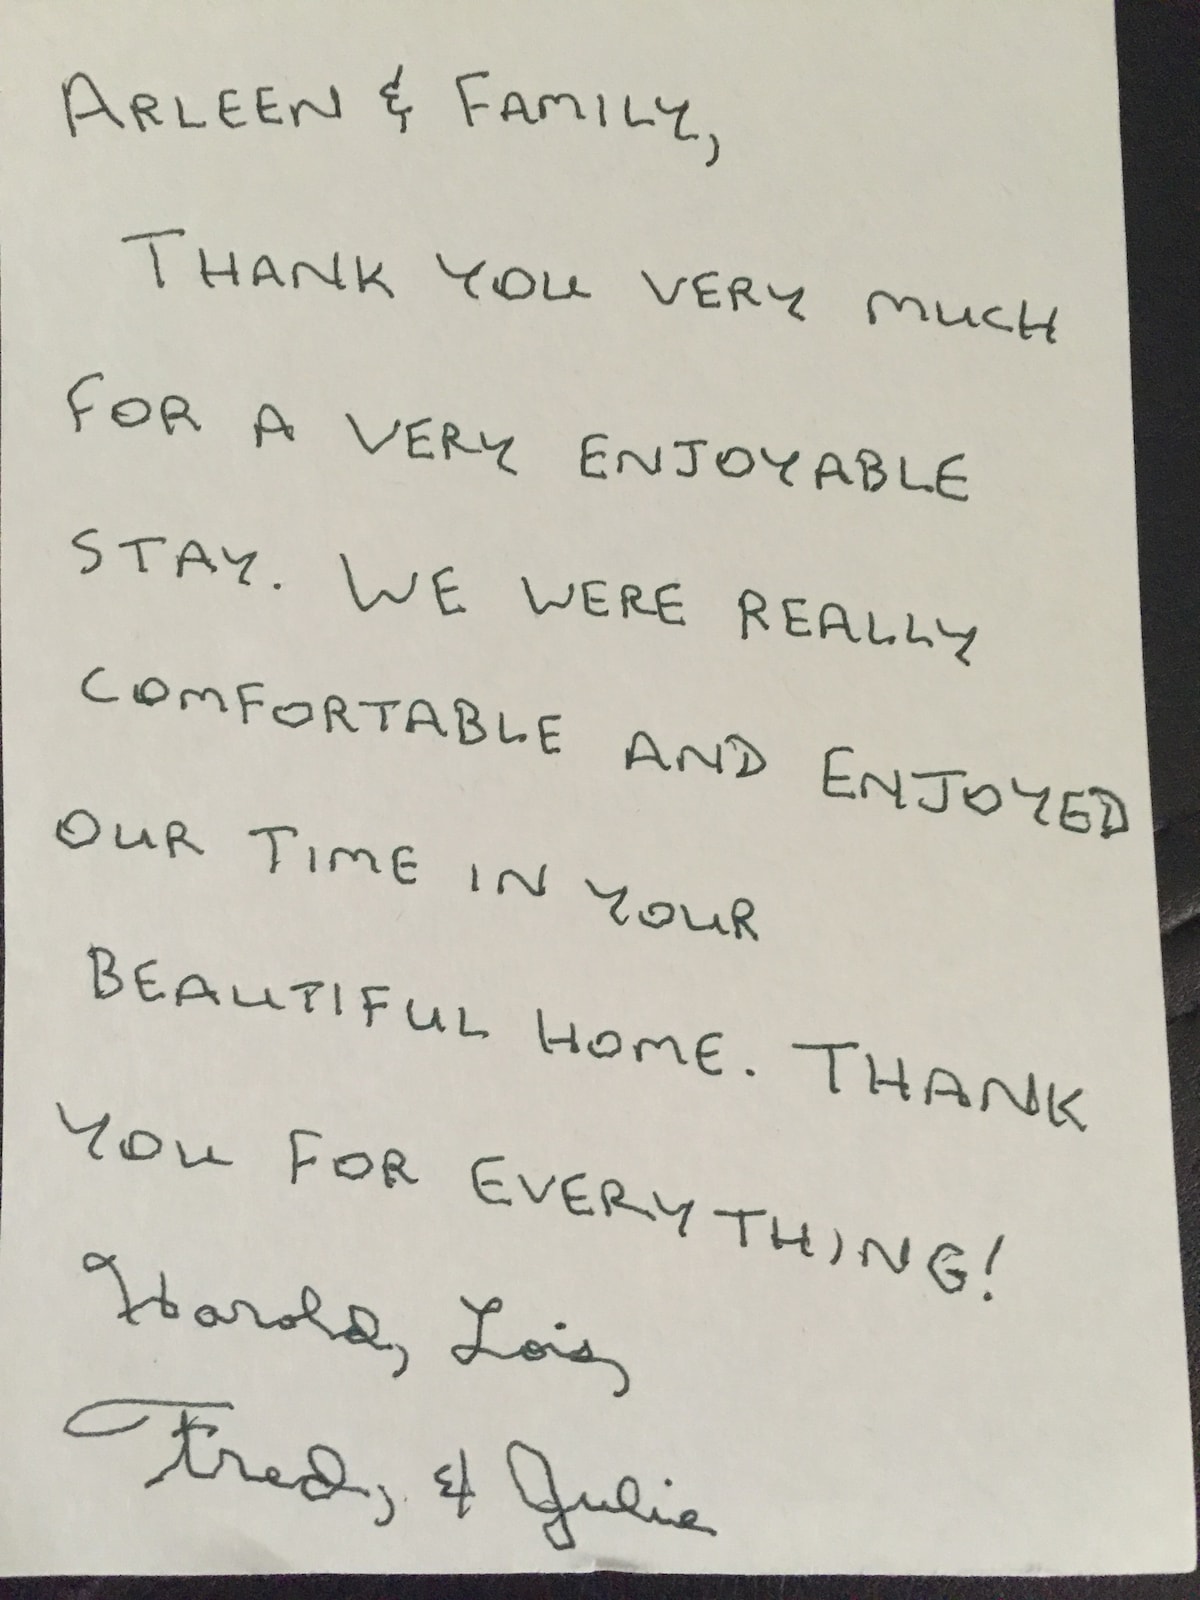 ARLEEN & FAMILY,
THANK YOU VERY MUCH
FOR A VERY ENJOYABLE
STAY. WE WERE REALLY
COMFORTABLE AND ENJOYED
OUR TIME IN YOUR
BEAUTIFUL HOME. THANK
YOU FOR EVERYTHING!
Harold, Lois,
Fred, & Julie